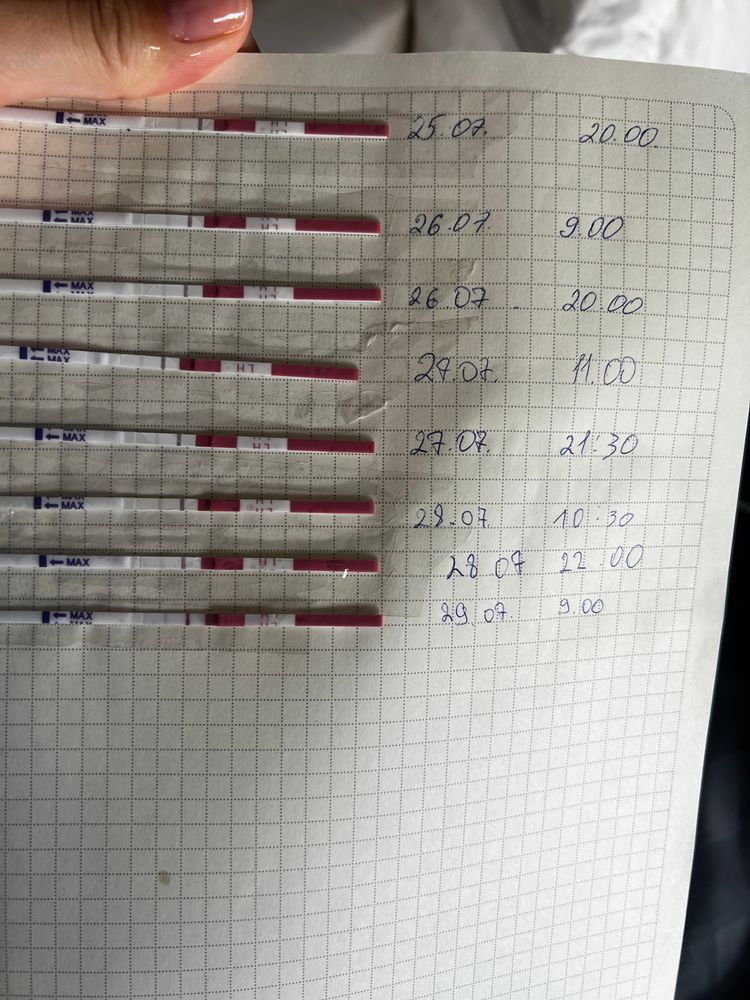 ← MAX LH 25.07. 20.00
MAX LH 26.07. 9.00
← MAX LH 26.07 20.00
MAX LH 27.07. 11.00
← MAX LH 27.07. 21:30
← MAX LH 28.07 10.30
← MAX LH 28 07 22 00
← MAX LH 29.07. 9.00